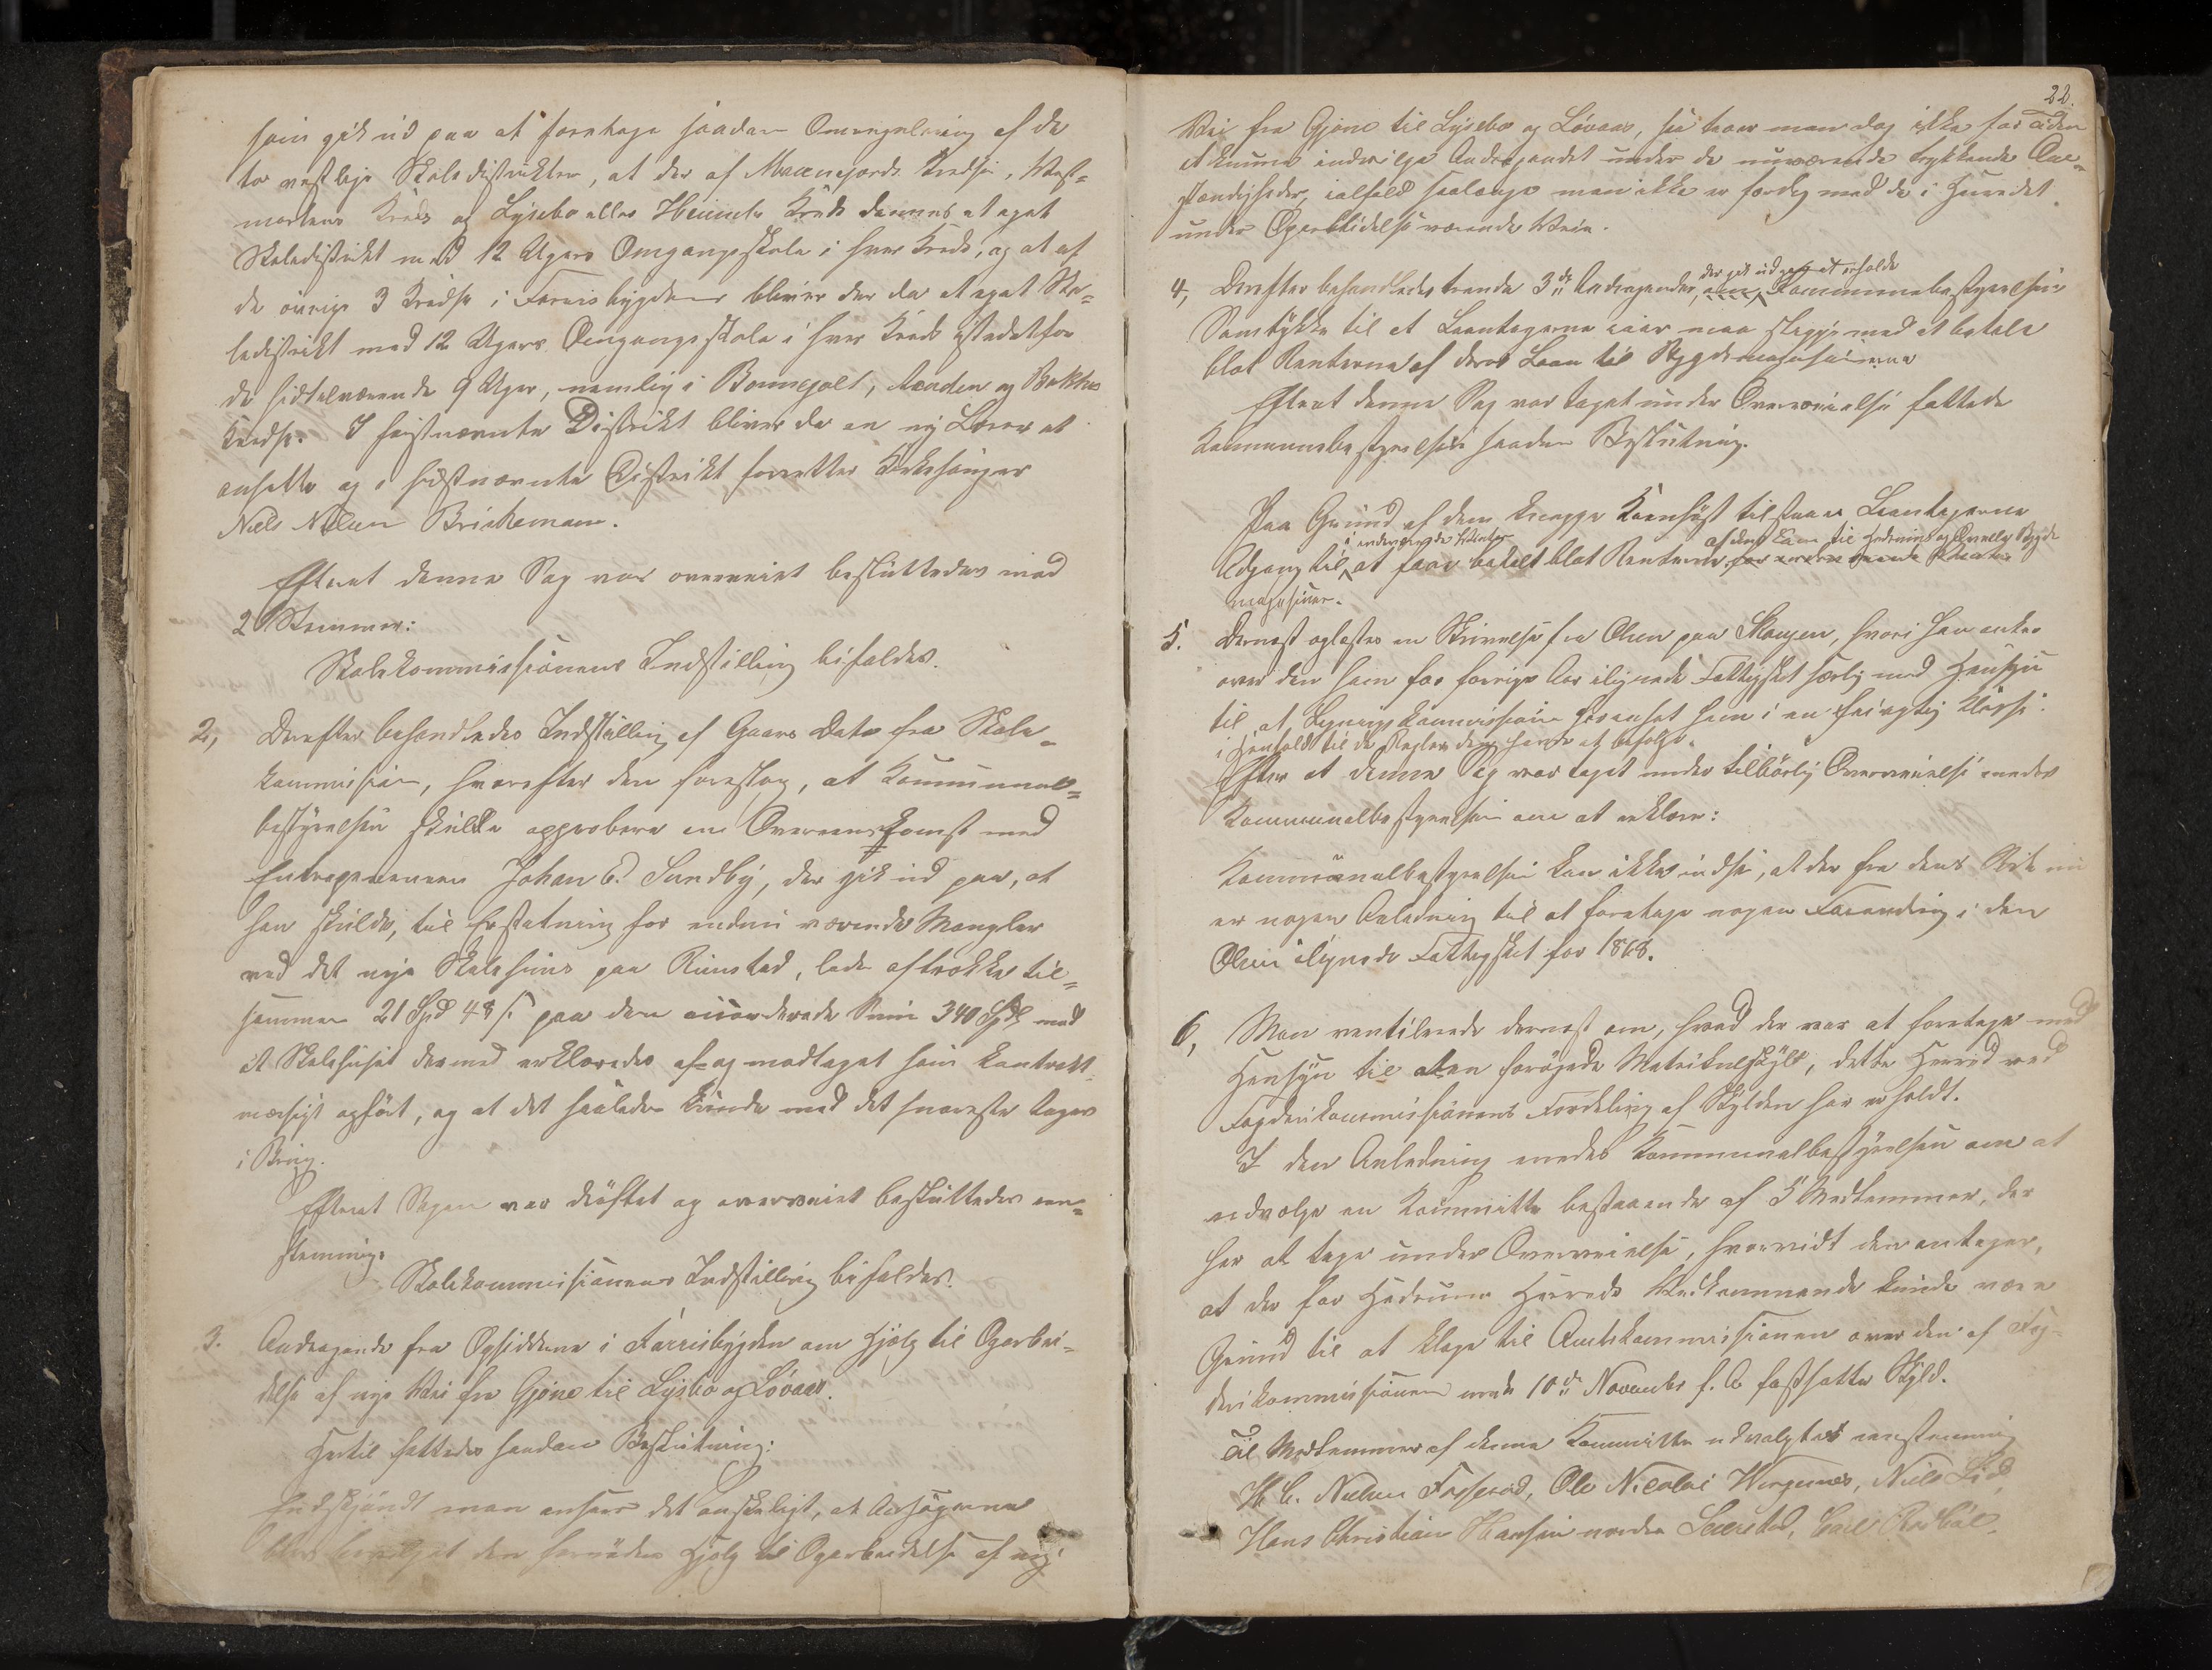 som gik ud paa at foretage saadan Omregulering af de
to vestlige Skoledistrikter, at der af Kredse, Vest-
markens Kreds og Lysebo eller Kreds dannes et eget
Skoledistrikt med 12 Ugers Omgangsskole i hver Kreds, og at af
de øvrige 3 Kredse i Farrisbygden bliver der da et eget Sko-
ledistrikt med 12 Ugers Omgangsskole i hver Kreds istedetfor
de hidtilværende 9 Uger, nemlig i Bommejolt, og
Kredse. I førstnævnte Distrikt bliver da en ny Lærer at
ansætte og i sidstnævnte Distrikt forretter Kirkesanger
Niels Nilsen Brinkemann.
Efterat denne Sag var overveiet besluttedes med
Stemmer:
Skolekommissionens Indstilling bifaldes.
2, Derefter behandledes Indstilling af Gaars Dato fra Skole-
kommission, hvorefter den foreslog, at Kommunal-
bestyrelsen skulde approbere en Overenskomst med
Entreprenøren Johan C. Sundby, der gik ud paa, at
han skulde, til Erstatning for endnu værende Mangler
ved det nye Skolehuus paa Rimstad, lade aftrække til-
sammen 21 Spd 48 ß paa den accorderede Sum 340 Spd mod
at Skolehuset dermed erklæredes af- og modtaget som kontrakt-
mæssigt opført, og at det saaledes kunde med det snareste tages
i Brug.
Efterat Sagen var drøftet og overveiet besluttedes een-
stemmig:
Skolekommissionens Indstilling bifaldes.
3. Andragende fra Opsidderne i Farrisbygden om Hjælp til Oparbei-
delse af nye Vei fra Gjøne til Lysebo og Løvaas.
Hertil fattedes saadan Beslutning:
Endskjøndt man anseer det ønskeligt, at Ansøgerne
den fornødne Hjælp til Oparbeidelse af ny
22.
Vei fra Gjone til Lysebo og Løvaas, saa troer man dog ikke for Tiden
at kunne indvilge Andragendet under de nuværende trykkende Om-
stændigheder, ialfald saalænge man ikke er færdig med de i Herredet
under Oparbeidelse værende Veie.
4, Derefter behandledes trende Andragender, der gik ud paa at erholde Kommunebestyrelsens
Samtykke til at Laantagerne iaar maa slippe med at betale
blot Renterne af deres Laan til Bygdemagasinerne
Efterat denne Sag var taget under Overveielse fattede
Kommunebestyrelsen saadan Beslutning.
Paa Grund af den knappe Kornhøst tilstaaes Laantagerne
i indeværende Vinter af deres Laan til Hedrums og Qvelde Bygde
Adgang til at faae betalt blot Renterne
magasiner.
5. Dernæst oplæstes en Skrivelse fra Olsen paa Skougen, hvori han anker
over den ham for forrige Aar ilignede Fattigskat særlig med Hensyn
til at Ligningskommissionen havde ansat ham i en Klasse.
i Henhold til de Regler den havde at befølge.
Efter at denne Sag var taget under tilbørlig Overveielse enedes
Kommunalbestyrelsen om at erklære:
Kommunalbestyrelsen kan ikke indse, at der fra dens Side nu
er nogen Anledning til at foretage nogen Forandring i den
Olsen ilignede Fattigskat for 1868.
6, Man ventilerede dernæst om, hvad der var at foretage med
Hensyn til den forøgede Matrikulskyld, dette Herred ved
Fogderikommissionens Fordeling af Skylden har erholdt.
I den Anledning enedes Kommunalbestyrelsen om at
udvælge en Kommitte bestaaende af 5 Medlemmer, der
har at tage under Overveielse, hvorvidt den antager,
at der for Hedrums Herreds Vedkommende kunde være
Grund til at klage til Amtskommissionen over den af Fog-
derikommissionen under 10de November f. A. fastsatte Skyld.
Til Medlemmer af denne Kommitte udvalgtes eenstemmig
H. C. Nielsen Fosserød, Ole Nicolai Vingenæs, Niels Lid,
Hans Christian Hansen nordre Seierstad, Carl Rødbøl.